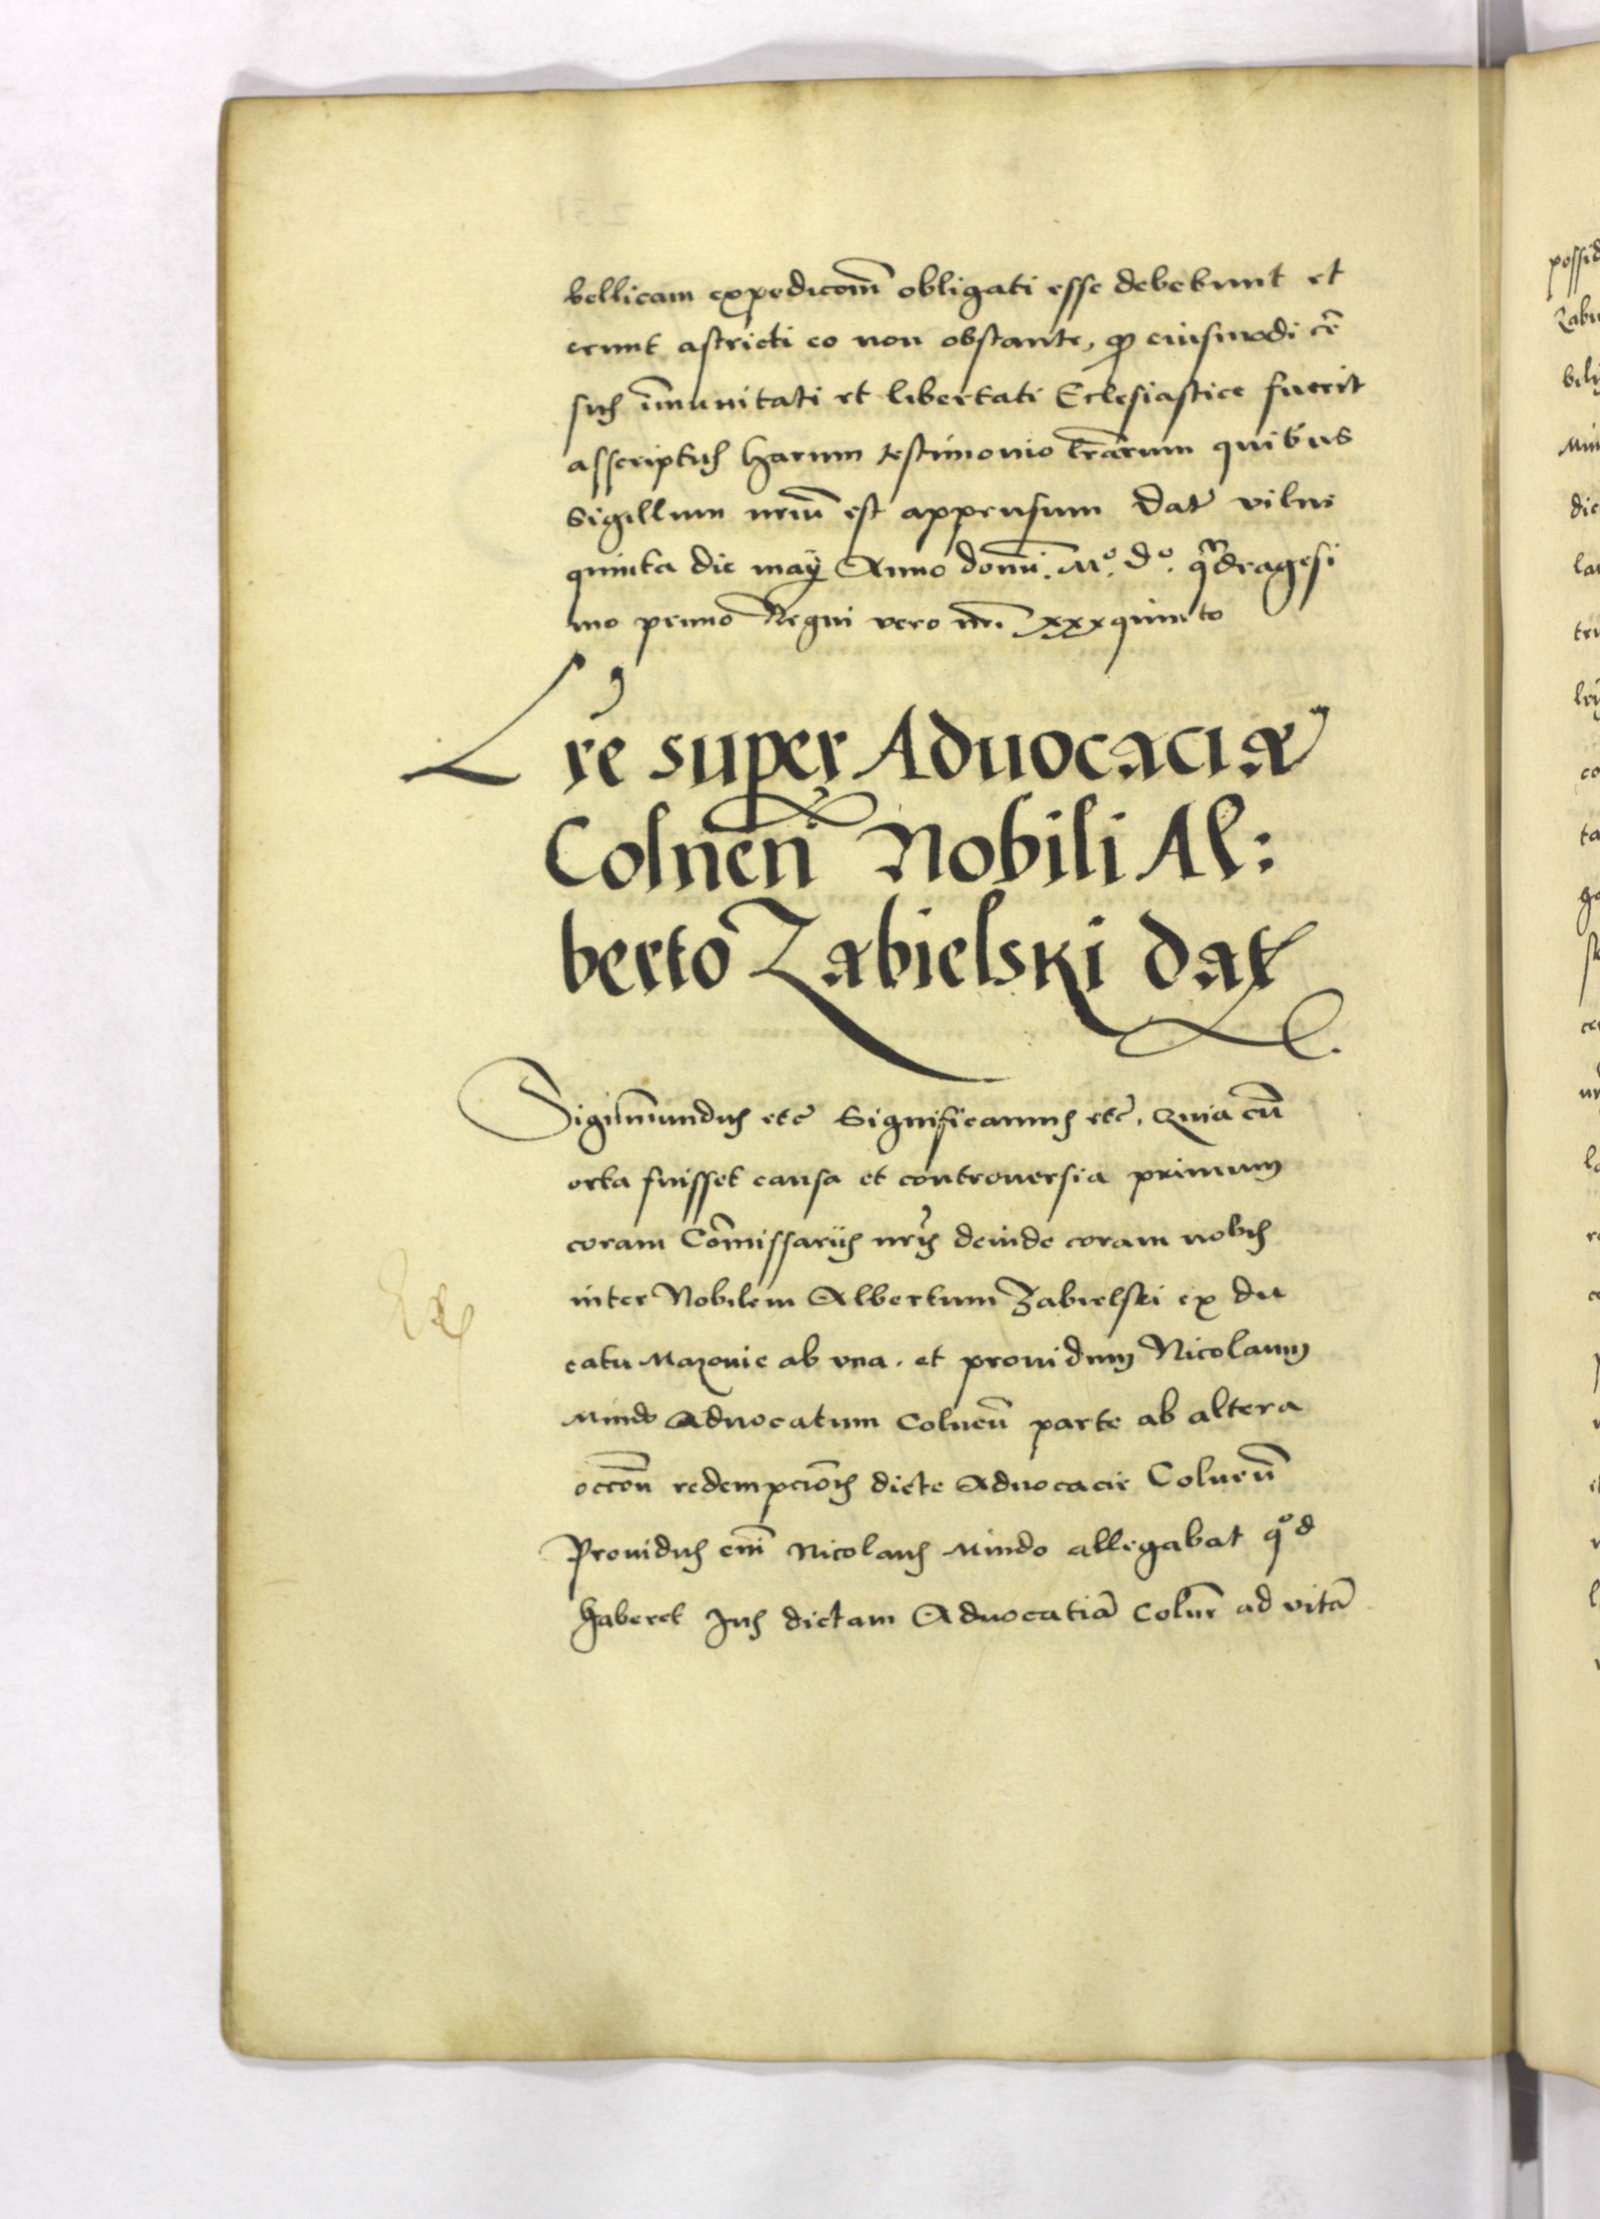 bellicam expediconẽ obligati esse debebunt et
erunt astricti eo non obstante, ꝙ eiusmodi cẽ
sus ĩmunitati et libertati Eclesiastice fuerit
asscriptus Harum testimonio lr̃arum quibus
Sigillum nr̃um est appensum Dat vilne
quinta die maÿ Anno domĩ. Mº. dº. q̃dragesi
mo primo Regni vero nr̃i xxxquinto
Lr̃e super Aduocacia
Colnen̄ Nobili Al:
berto Zabielski dat
Sigismundus etc̃ Significamus etc̃. Quia cũ
orta fuisset causa et controuersia primum
coram Cõmissarijs nr̃is deinde coram nobis
inter Nobilem Albertum Zabielski ex du
catu Mazouie ab vna. et prouidum Nicolaum
Mindo Aduocatum Colnen̄ parte ab altera
occõne redempciõis dicte Aduocacie Colnen̄
Prouidus em̃ Nicolaus Mindo allegabat qºd
haberet Jus dictam Aduocatiã Coln̄e ad vitã